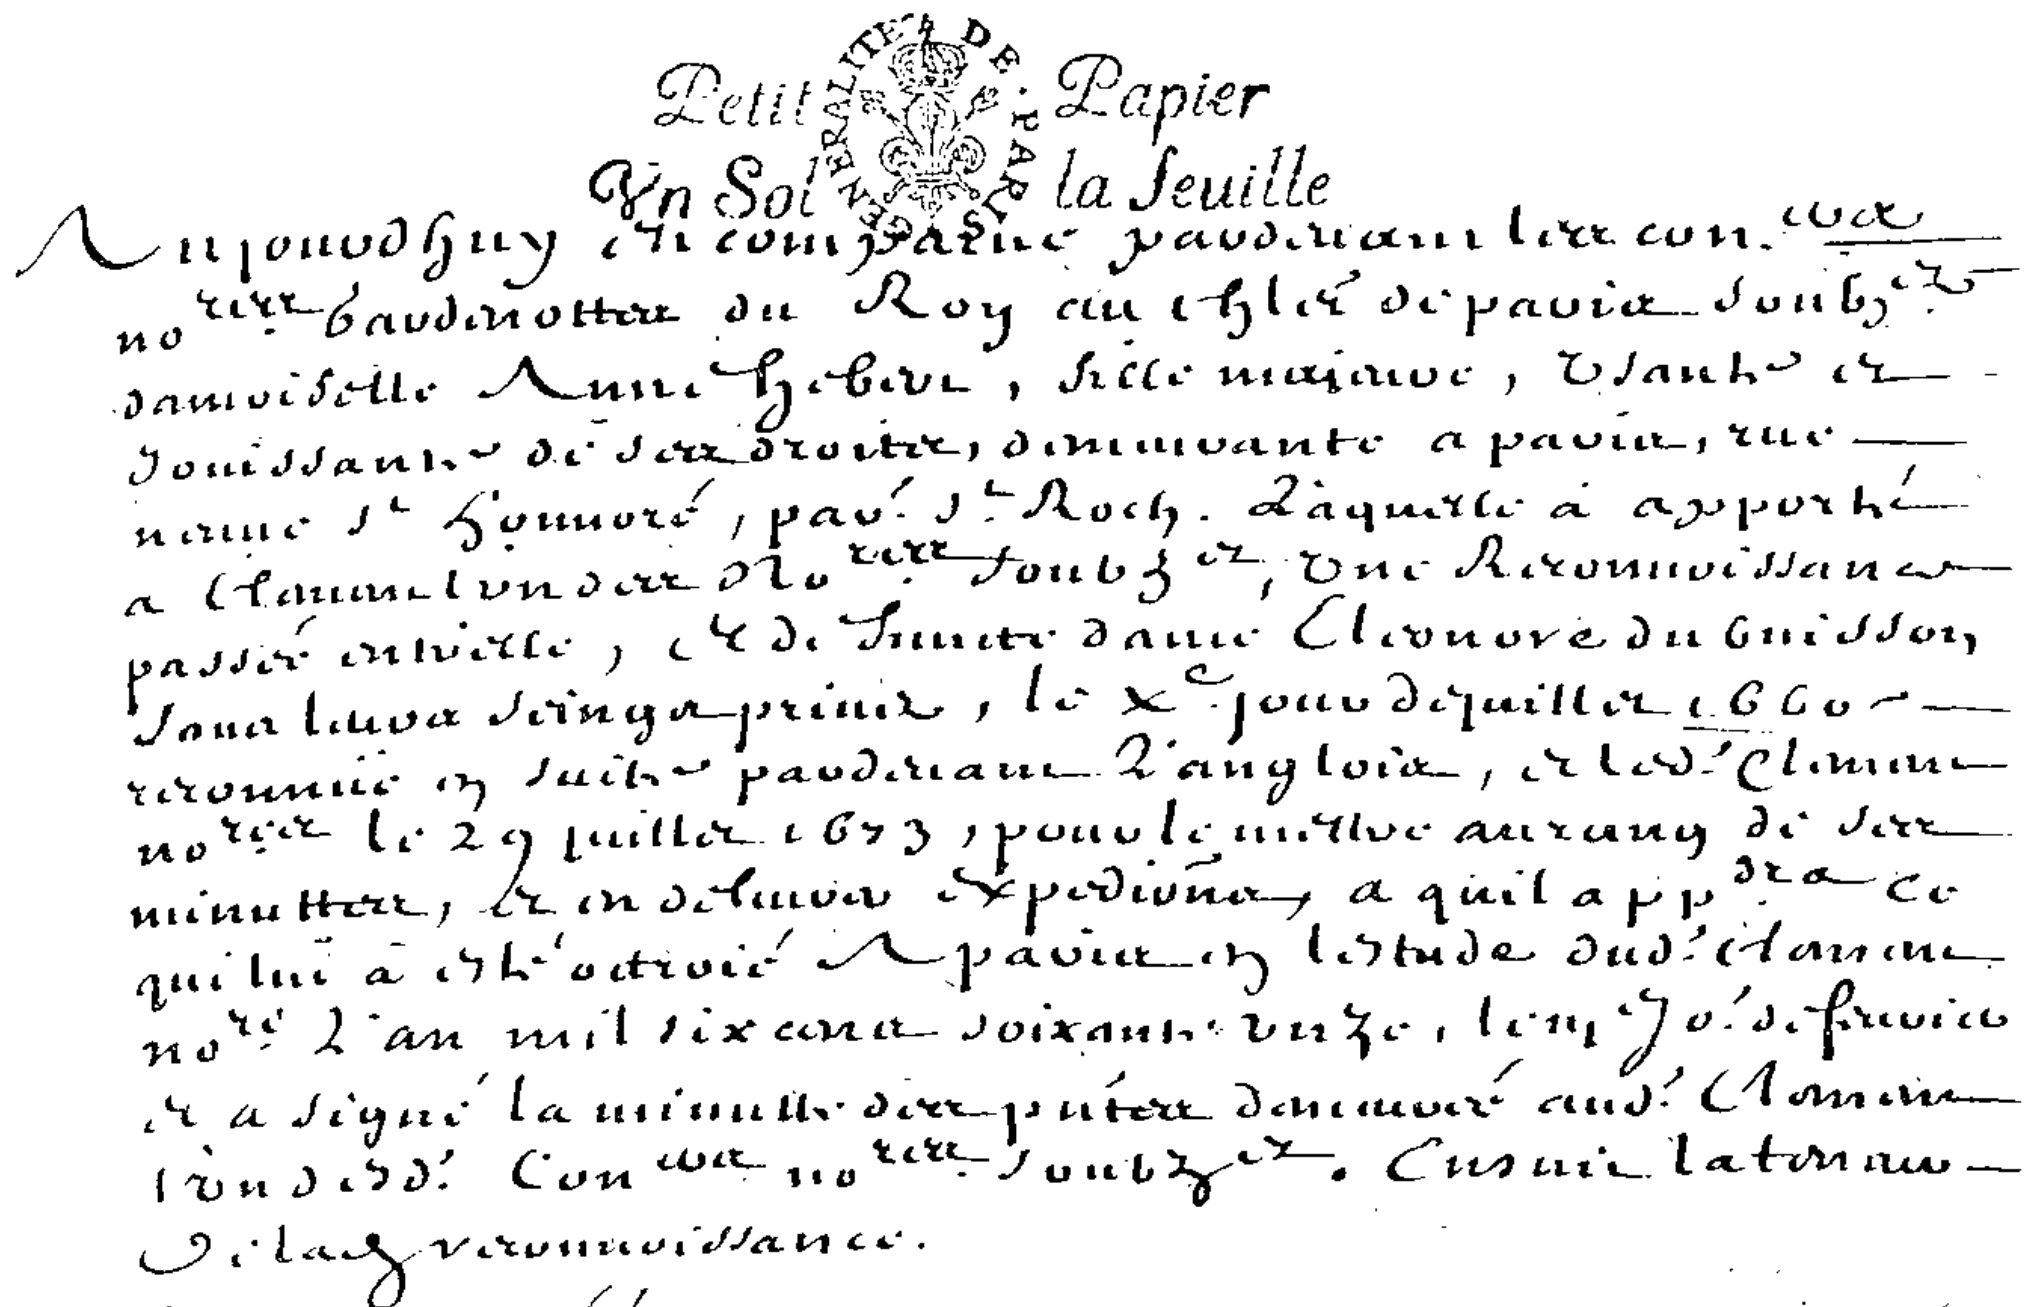 Petit Papier
GENERALITE DE PARIS
Vn Sol la feuille
Aujourdhuy est comparue pardevant les con.ers
no.res gardenottes du Roy au chlet de paris soubz.ez
damoiselle Anne Hebert, fille majeure, Usante et
Jouissante de ses droits, demeurante a paris, rue
neuve St Honnoré, par. St Roch. Laquelle à apporté
a Clement lun des No.res soubz.ez, Une Reconnoissance
passée entrelle, et deffuncte dame Eleonore du buisson
sous leurs seings privez, le xe. jour de juillet 1660
reconnue en suitte pardevant Langlois, et led. Clement
no.res le 29 juillet 1673, pour le mettre au rang de ses
minuttes, et en delivrer expedions, a quil app.dra ce
qui lui à esté octroié A paris en lestude dud. Clement
no.re L'an mil six cens soixante unze, le Jo. de fevrier
et a signé la minutte des pntes demeuré aud. Clement
lun desd. Con.ers no.res soubz.ez. Ensuit la teneur
de lad reconnoissance.